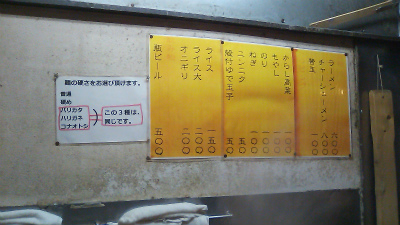 麺の硬さをお選び頂けます。
普通
硬め
バリカタ
ハリガネ
コナオトシ
この3種は、
同じです。
ラーメン 六〇〇
チャーシューメン 八〇〇
替玉 一〇〇
からし高菜 一〇〇
もやし 一〇〇
のり 一〇〇
ねぎ 一〇〇
ニンニク 五〇
殻付ゆで玉子 五〇
ライス 一五〇
ライス大 二〇〇
オニギリ 二〇〇
瓶ビール 五〇〇